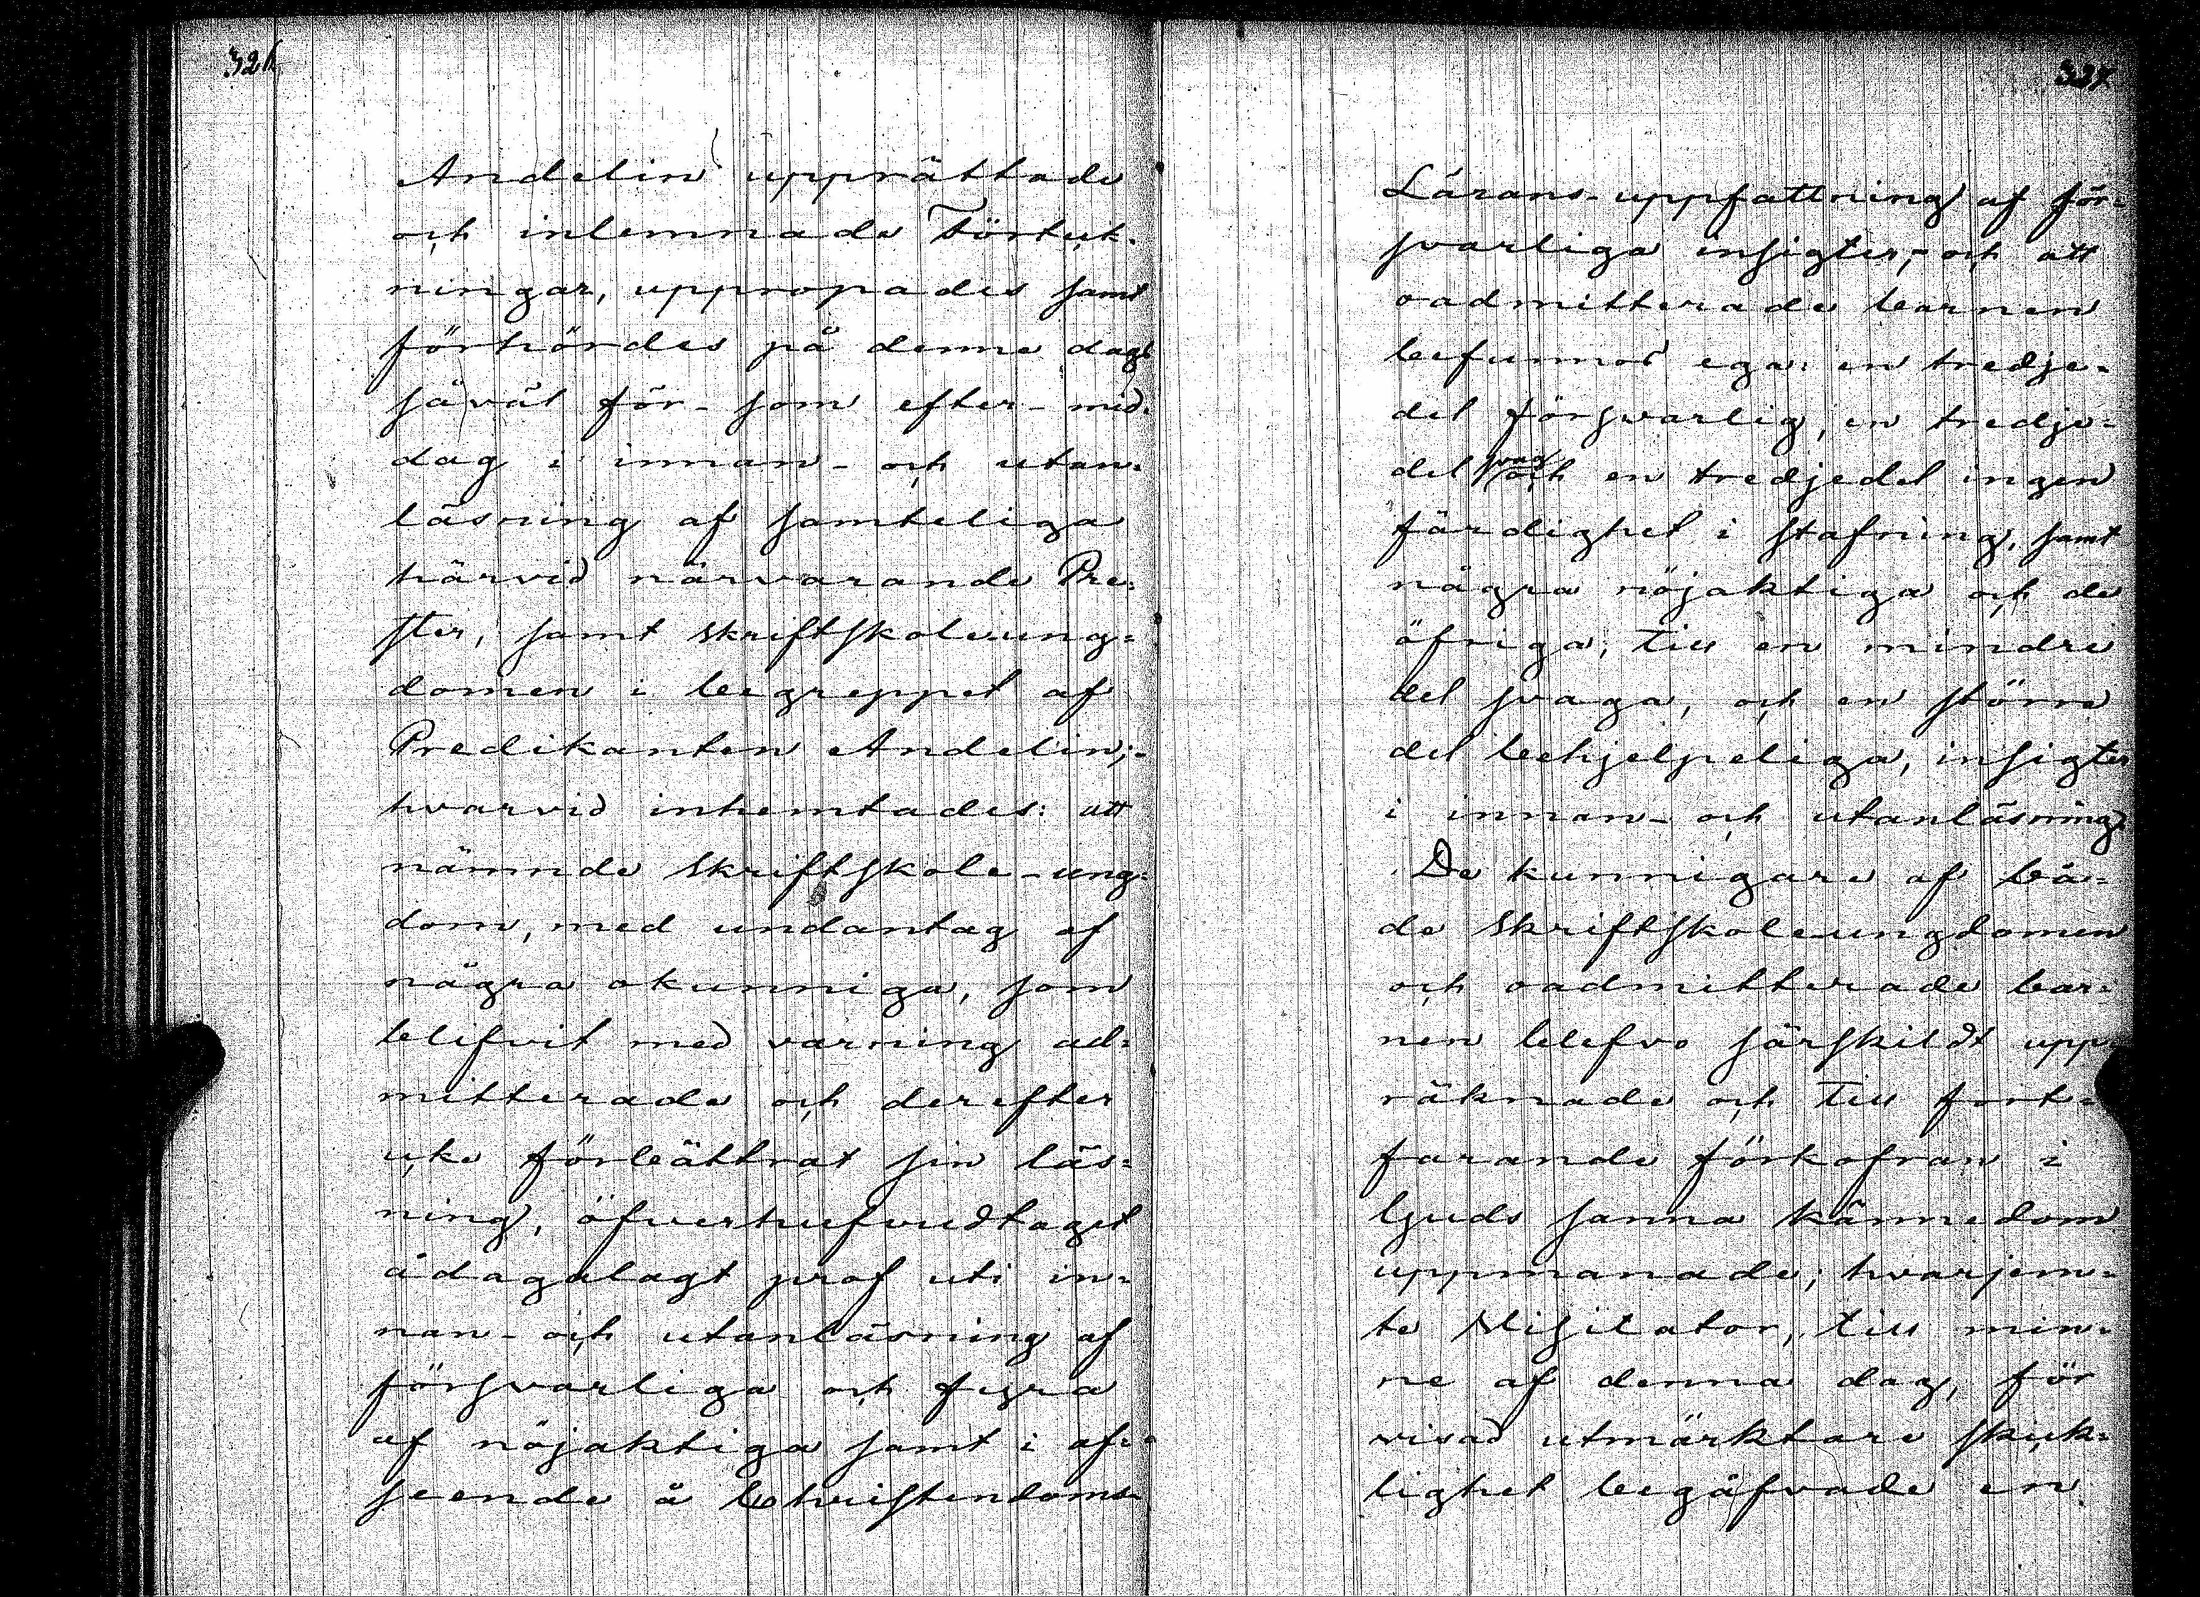 326
Andelin upprättade
och inlemnade Förtek-
ningar, uppropades samt
förhördes på denne dag
såväl för- som efter-mid-
dag i innan- och utan-
läsning af samteliga
härvid närvarande Pre-
ster, samt skriftskoleung-
domen i begreppet af
Predikanten Andelin;-
hvarvid inhemtades: att
nämnde skriftskole-ung-
dom, med undantag af
några okunniga, som
blifvit med varning ad-
mitterade och derefter
icke förbättrat sin läs-
ning, öfverhufvudtaget
ådagalagt prof uti in-
nan- och utanläsning af
försvarliga och fyra
af nöjaktiga samt i af-
seende å Christendoms-
327
Lärans-uppfattning af för-
svarliga insigter,- och att
oadmitterade barnen
befunnos ega: en tredje-
del försvarlig, en tredje-
del svag och en tredjedel ingen
färdighet i stafning, samt
några nöjaktiga och de
öfriga, till en mindre
del svaga, och en större
del behjelpeliga, insigter
i innan- och utanläsning.
De kunnigare af bå-
de skriftskoleungdomen
och oadmitterade bar-
nen blefvo särskildt upp-
räknade och till fort-
farande förkofran i
Guds sanna kännedom
uppmanade; hvarjem-
te Visitator, till min-
ne af denna dag, för
visad utmärktare skick-
lighet begåfvade en